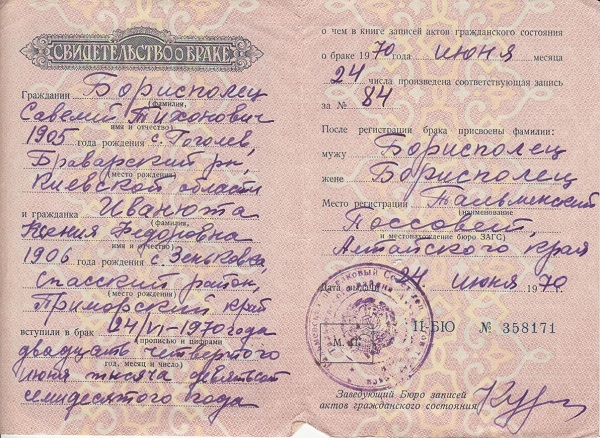 СВИДЕТЕЛЬСТВО О БРАКЕ
Гражданин Борисполец
(фамилия,
Савелий Тихонович
имя и отчество)
1905 года рождения с. Гоголев,
Браварский р-н,
(место рождения)
Киевской области
и гражданка Иванюта
(фамилия,
Ксения Федоровна
имя и отчество)
1906 года рождения с. Зеньковка,
Спасский район,
(место рождения)
Приморский край
вступили в брак 24/VI-1970 года
(прописью и цифрами
двадцать четвертого
год, месяц и число)
июня тысяча девятьсот
семидесятого года
о чем в книге записей актов гражданского состояния
о браке 1970 года июня месяца
24 числа произведена соответствующая запись
за № 84
После регистрации брака присвоены фамилии:
мужу Борисполец
жене Борисполец
Место регистрации Тальменский
(наименование
Поссовет,
и местонахождение бюро ЗАГС)
Алтайского края
Дата выдачи 24 июня 1970 г.
М. П.
II-БЮ № 358171
Заведующий Бюро записей
актов гражданского состояния